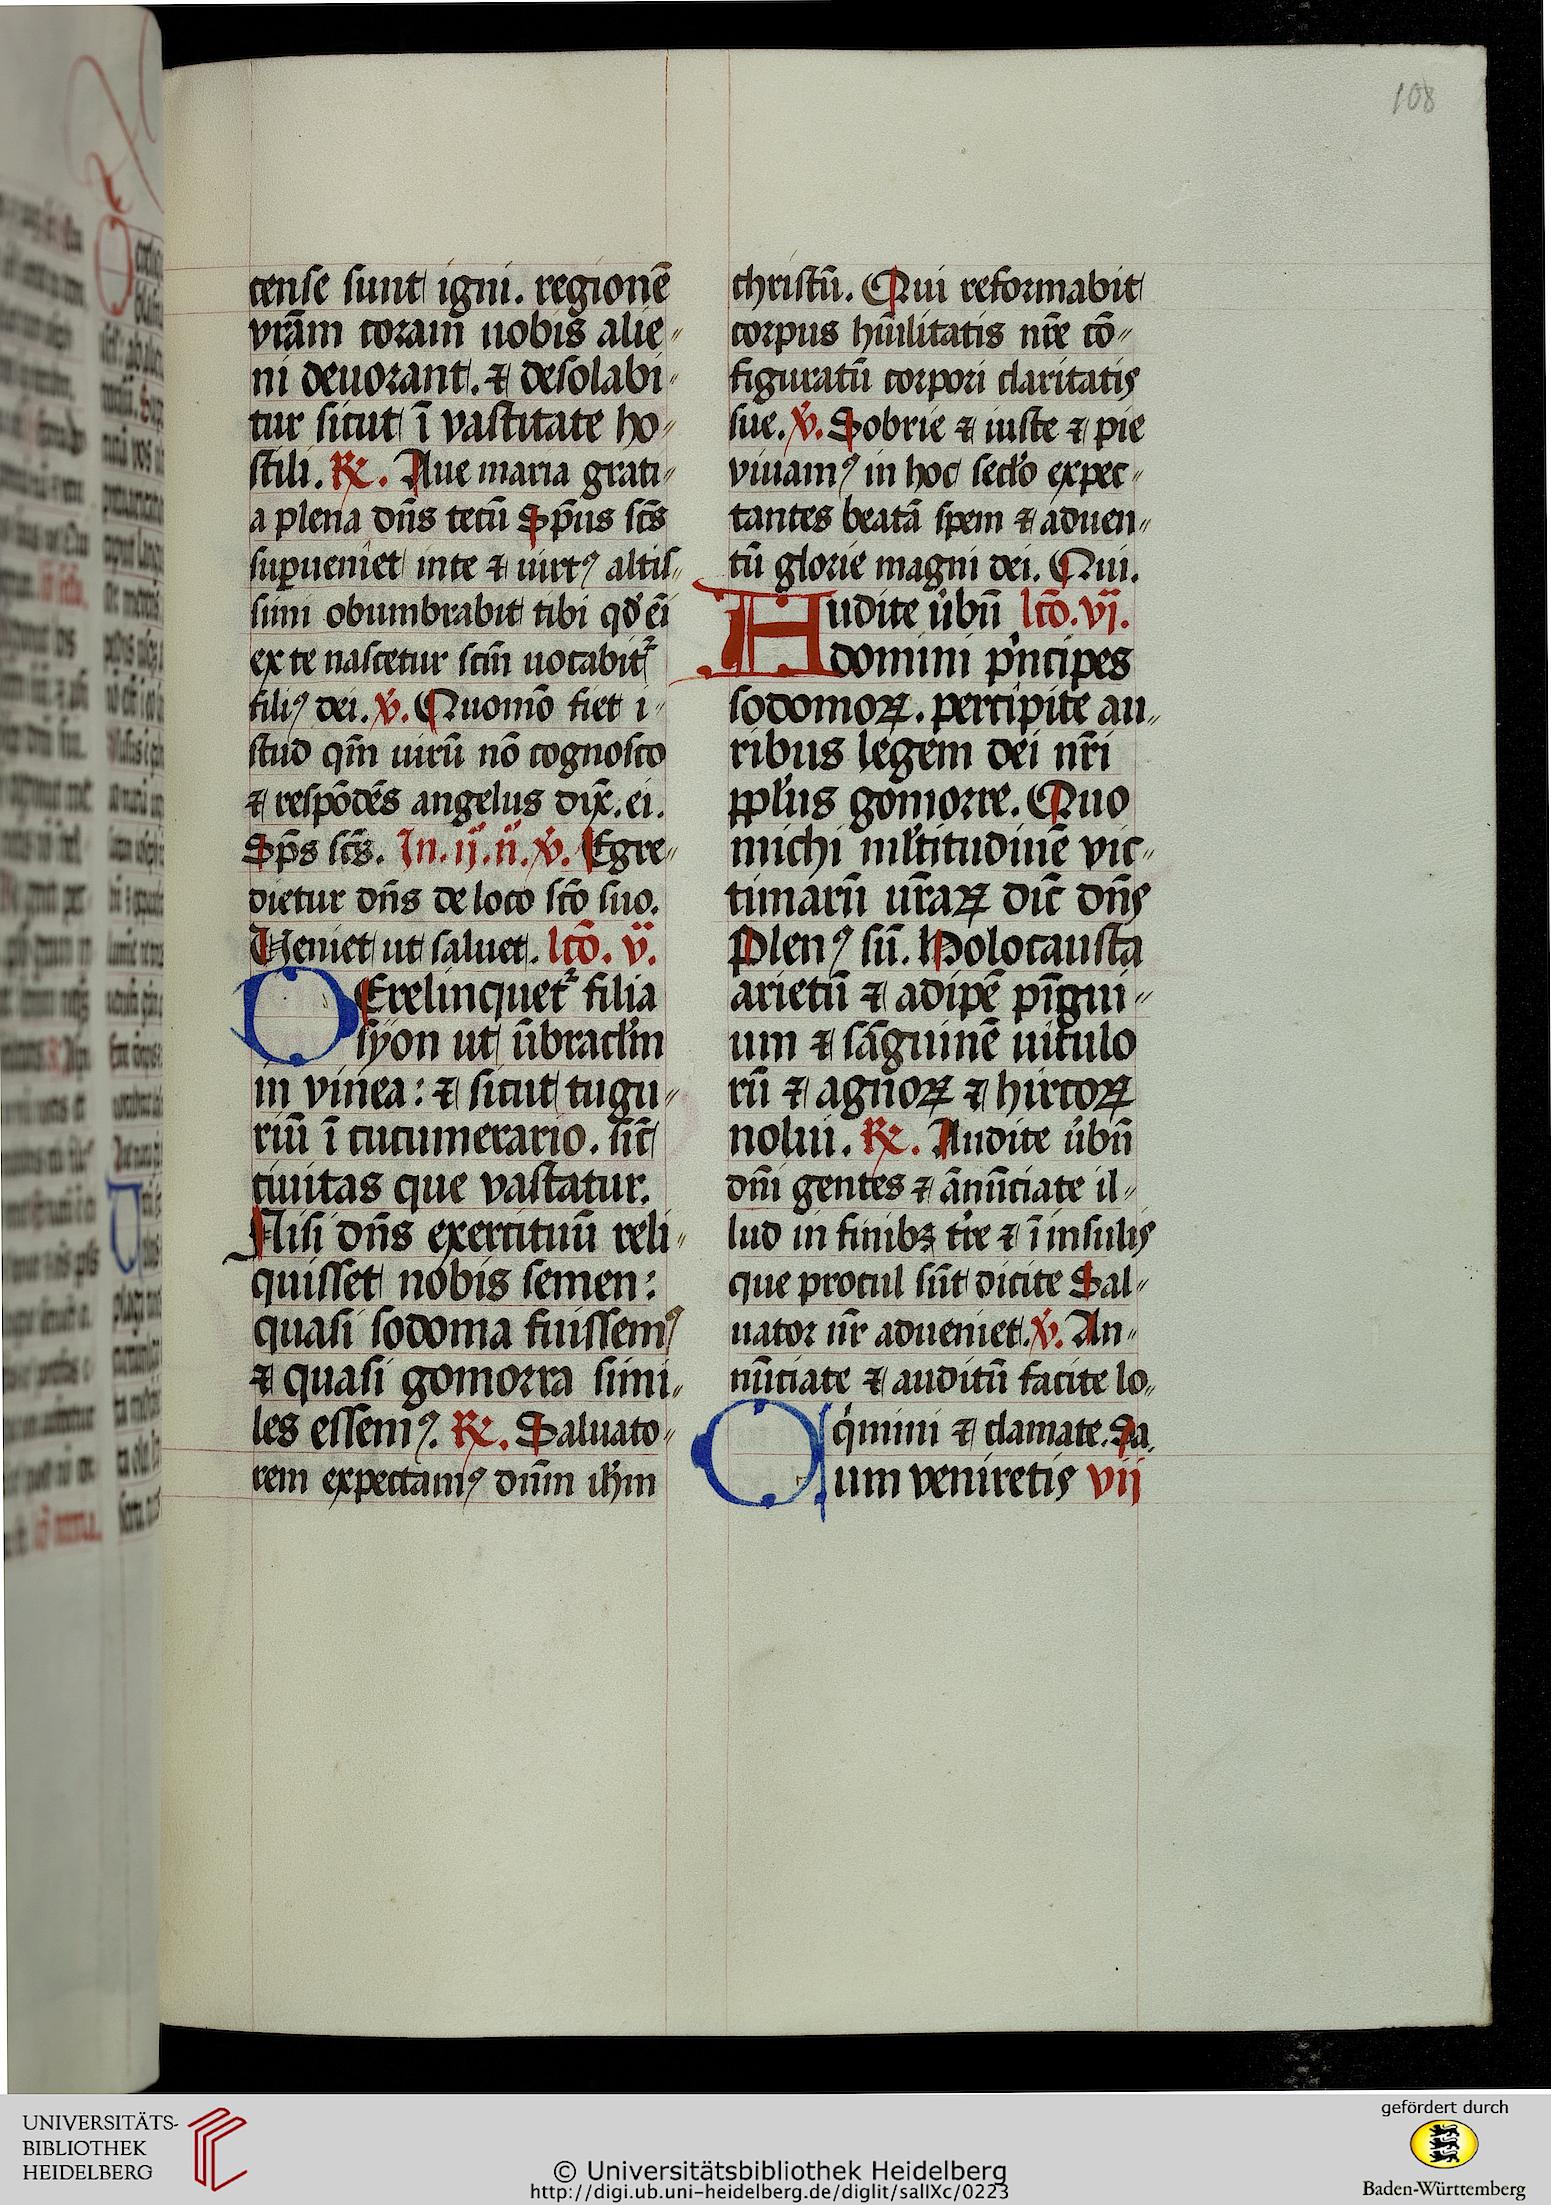 108
cense sunt igni. regionē
vrām coram uobis alie〃
ni deuorant. ⁊ desolabi〃
tur sicut ī vastitate ho〃
stili. ℟. Aue maria grati〃
a plena dn̄s tecū Sp̄us sc̄s
suꝑueniet inte ⁊ uirtꝰ altis〃
simi obumbrabit tibi qd̕ eī
ex te nascetur scm̄ uocabit᷑
filiꝰ dei. ℣. Quomō fiet i〃
stud qm̄ uirū nō cognosco
⁊ respōdēs angelus dix̄. ei.
Sp̄s sc̄s. In. ij. n̄. ℣. Egre〃
dietur dn̄s de loco scō suo.
Ueniet ut saluet. lcō. v.
DErelinquet᷑ filia
syon ut ūbraclm̄
in vinea: ⁊ sicut tugu〃
riū ī cucumerario. sic̄
ciuitas que vastatur.
Nisi dn̄s exercituū reli〃
quisset nobis semen:
quasi sodoma fuissemꝰ
⁊ quasi gomorra simi〃
les essemꝰ. ℟. Saluato〃
rem expectamꝰ dnm̄ ihm̄
christū. Qui reformabit
corpus hūilitatis nr̄e cō〃
figuratū corpori claritatis
sue. ℣. Sobrie ⁊ iuste ⁊ pie
viuamꝰ in hoc secl̄o expec〃
tantes beatā spem ⁊ aduen〃
tū glorie magni dei. Qui.
Audite u̕bū lcō. vj.
domini pͥncipes
sodomoꝝ. percipite au〃
ribus legem dei nr̄i
ppl̄us gomorre. Quo
michi ml̄titudinē vic〃
timarū ur̄aꝝ dic̄ dn̄s
Plenꝰ sū. Holocausta
arietū ⁊ adipē pīgui〃
um ⁊ sāguinē uitulo
rū ⁊ agnoꝝ ⁊ hircoꝝ
nolui. ℟. Audite u̕bū
dn̄i gentes ⁊ ānūciate il〃
lud in finibꝫ tr̄e ⁊ ī insulis
que procul sūt dicite Sal〃
uator nr̄ adueniet. ℣. An〃
nūciate ⁊ auditū facite lo〃
qͥmini ⁊ clamate. Sa.
Cum veniretis vij
UNIVERSITÄTS-
BIBLIOTHEK
HEIDELBERG
© Universitätsbibliothek Heidelberg
http://digi.ub.uni-heidelberg.de/diglit/salIXc/0223
gefördert durch
Baden-Württemberg